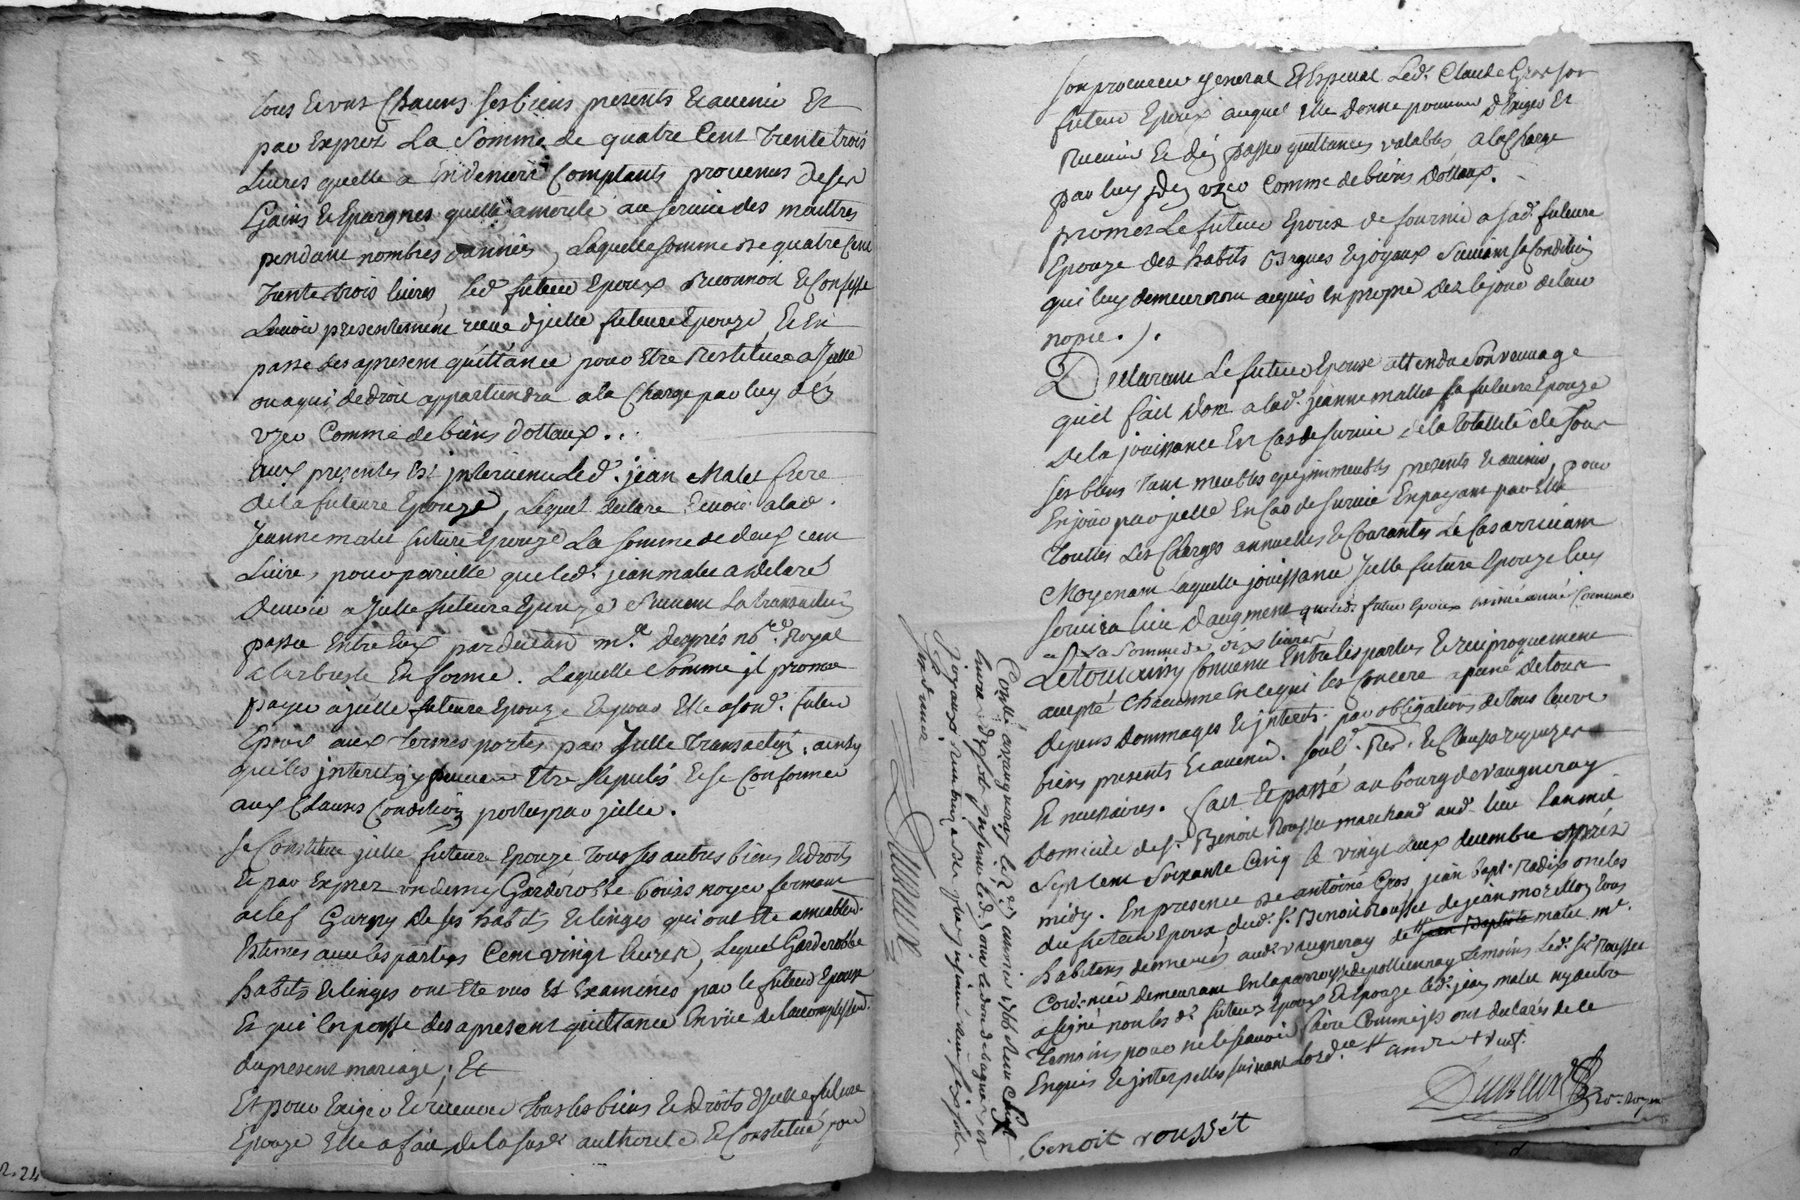 tous et uns Chacuns ses biens presents et avenir Et
par Exprez La Somme de quatre Cent trente trois
Livres quelle a en deniers Comptants provenus de ses
Gains et Epargnes quelle a au service des maitres
pendant nombres dannées, Laquelle somme de quatre Cent
trente trois livres led. futeur Epoux Reconnoi et Confesse
avoir presentement receu djcelle futeure Epouze, et En
passe des apresent quittance pour Etre Restituée a jcelle
ou a qui de droit appartiendra a la Charge par luy dEn
Vzer Comme de biens dottaux..
aux presentes Est jntervenu Led. jean Matet frere
de la futeure Epouze, Lequel declare devoir a lad.
Jeanne matet future Epouze La somme de deux cent
Livres, pour pareille que led. jean matet a declaré
devoir a jcelle futeure Epouze Suivant La transaction
passée Entre Eux par devant me. no.re Royal
a Larbresle En forme. Laquelle Somme jl promet
payer a jcelle futeure Epouze Et pour Elle a sond. futeur
Epoux aux termes portés par jcelle transaction, ainsy
que les jnterets y peuvent Etre Stipulés Et se Conformer
aux Clauses Condition portés par jcelle.
Se Constitue jcelle future Epouze tous ses autres biens et droits
Et par Exprez un demy Garderobbe bois noyer fermant
a clef Garny de ses habits et linges qui ont Ete
Estimés entre les parties Cent vingt livres, Lequel Garderobbe
habits et linges ont Ete vus Et Examinés par le futeur Epoux
Et qui En passe des apresent quittance En vüe de laccomplissem.
du present mariage, Et
Et pour Exiger Et recevoir tous les biens et droits djcelle future
Epouze Elle a fait de la susd. authorité et Constitué pour
Son procureur general Et Special Led. Claude Gros son
futeur Epoux auquel Elle donne pouvoir dExiger Et
Recevoir Et dEn passer quittances valables a la Charge
par luy dEn vzer Comme de biens dottaux.
promet Le futeur Epoux de fournir a sad. future
Epouze des habits Bagues et joyaux Suivant sa Condition
qui luy demeureront acquis En propre dez le jour de leur
nopce.
Declarant Le futeur Epoux attendu Son veuvage
quil fait don a lad. jeanne mattet sa future Epouze
De la jouissance En Cas de survie de la totallité de tous
ses biens tant meubles que jmmeubles presents et avenir, pour
En jouir par jcelle En Cas de survie En payant par Elle
toutes Les Charges annuelles et Courantes Le Cas arrivant
Moyenant Laquelle jouissance jcelle future Epouze luy
servira lieu daugment que led. futeur Epoux année Commune
a La Somme de dix livres
Le tout ainsy Convenu Entre les parties Et reciproquement
accepté Chacunne En ce qui les Concerne a peine de tous
depens dommages et jnterets. par obligation de tous leurs
biens presents Et avenir. Soub. Ren. et Clauses requizes
Et necessaires. fait et passé au bourg de vaugneray
domicile de sr. Benoit Rousset marchand aud. lieu Lan mil
Sept cent Soixante Cinq le vingt deux decembre après
midy. En presence de antoine Gros, jean bapt. Radix oncles
du futeur Epoux dud. sr. Benoit Rousset de jean morillon tous
habitans demeurés aud. vaugneray de jean Baptiste matet me.
Cordonnier demeurant En la parroisse de pollionnay temoins Led. sr. Rousset
a signé non les d. futeurs Epoux et Epouze led. jean matet ny autre
temoins pour ne le sçavoir faire Comme jls ont declarés de ce
Enquis Et jnterpellés suivant Lord.ce
Benoit roussét
Controllé a vaugneray le 2 janvier 1766 Receu